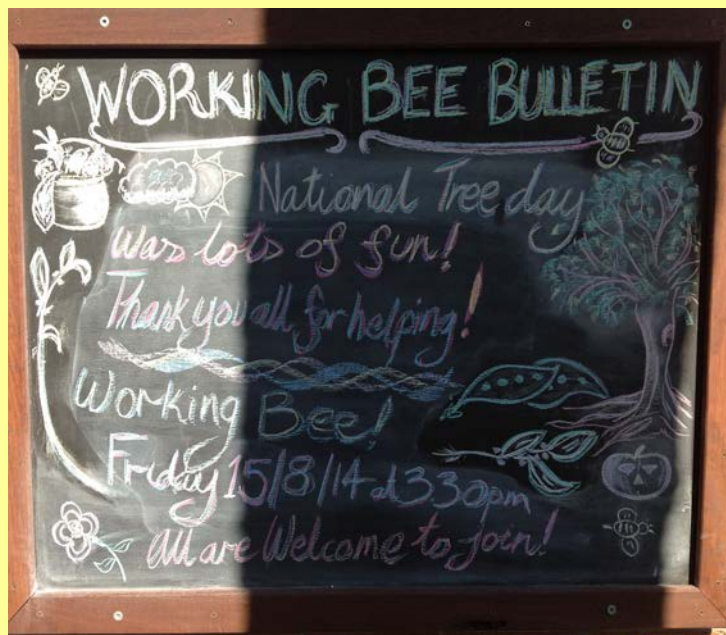 WORKING BEE BULLETIN
National Tree day
was lots of fun!
Thank you all for helping!
Working Bee!
Friday 15/8/14 at 330pm
All are Welcome to join!